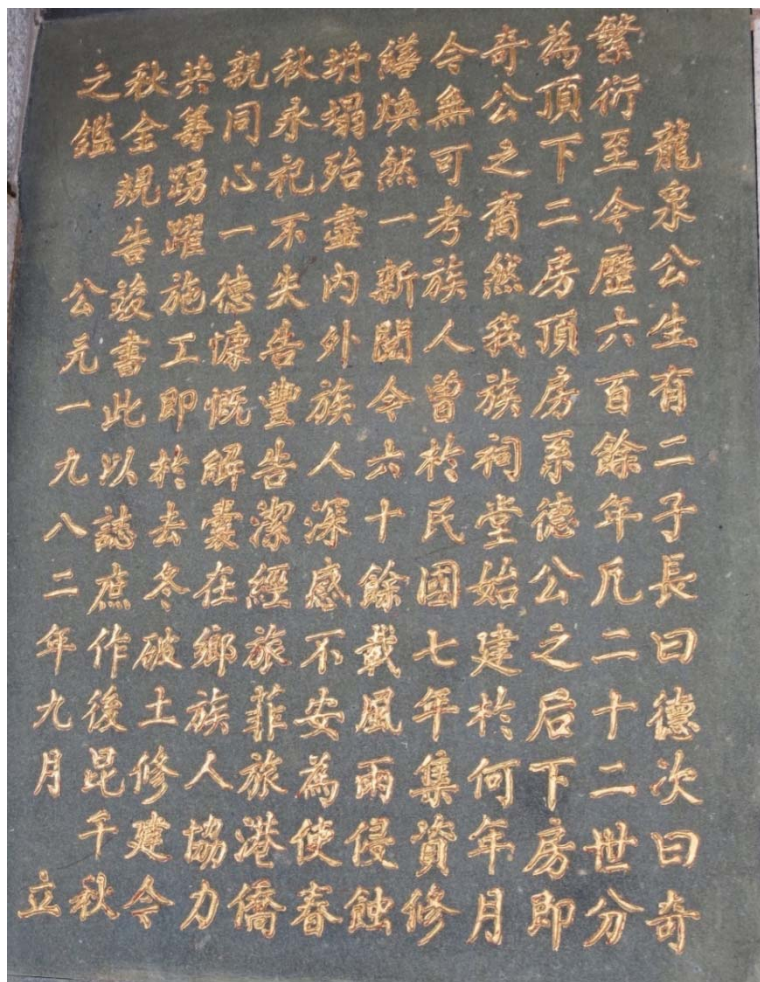 龍泉公生有二子長曰德次曰奇
繁衍至今歷六百餘年凡二十二世分
為頂下二房頂房系德公之后下房即
奇公之裔然我族祠堂始建於何年月
今無可考族人曾於民國七年集資修
繕煥然一新閱今六十餘載風雨侵蝕
坍塌殆盡內外族人深感不安為使春
秋永祀不失告豐告潔經旅菲旅港僑
親同心一德慷慨解囊在鄉族人協力
共籌踴躍施工即於去冬破土修建今
秋全規告竣書此以誌庶作後昆千秋
之鑑
公元一九八二年九月 立